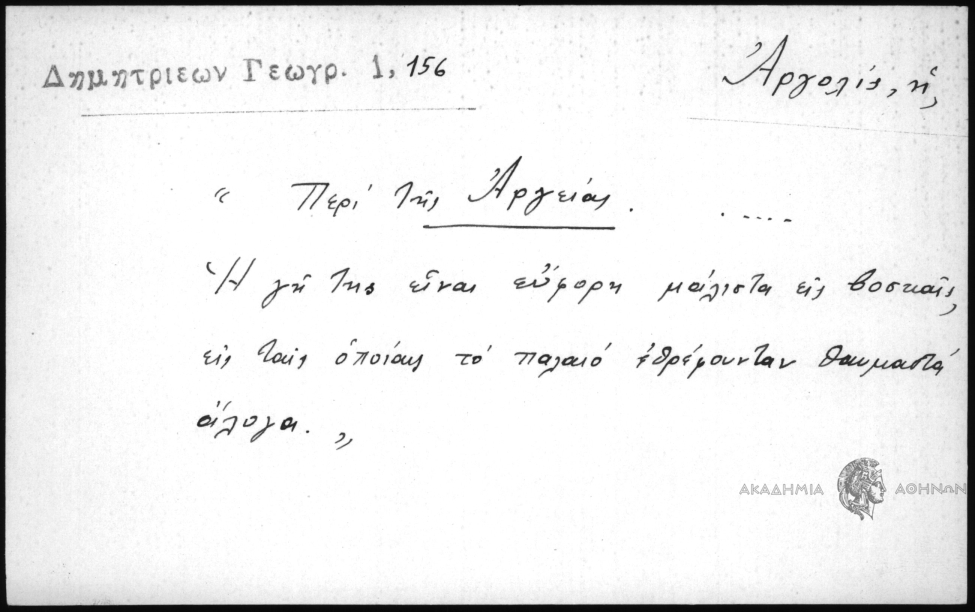 Δημητριεων Γεωγρ. 1, 156
Ἀργολίς, ἡ,
“ Περί τῆς Ἀργείας. .....
Ἡ γῆ της εἶναι εὔφορη μάλιστα εἰς βοσκαῖς,
εἰς ταῖς ὁποίαις τό παλαιό ἐθρέφουνταν θαυμαστά
ἄλογα. „
ΑΚΑΔΗΜΙΑ ΑΘΗΝΩΝ